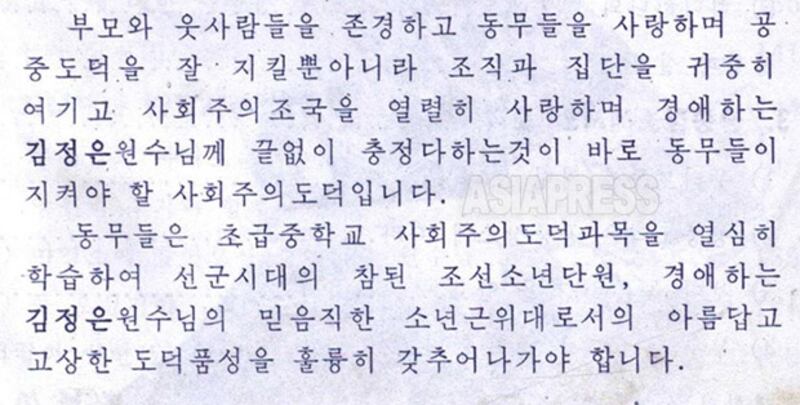 부모와 웃사람들을 존경하고 동무들을 사랑하며 공
중도덕을 잘 지킬뿐아니라 조직과 집단을 귀중히
여기고 사회주의조국을 열렬히 사랑하며 경애하는
김정은원수님께 끝없이 충정다하는것이 바로 동무들이
지켜야 할 사회주의도덕입니다.
ASIAPRESS
동무들은 초급중학교 사회주의도덕과목을 열심히
학습하여 선군시대의 참된 조선소년단원, 경애하는
김정은원수님의 믿음직한 소년근위대로서의 아름답고
고상한 도덕품성을 훌륭히 갖추어나가야 합니다.